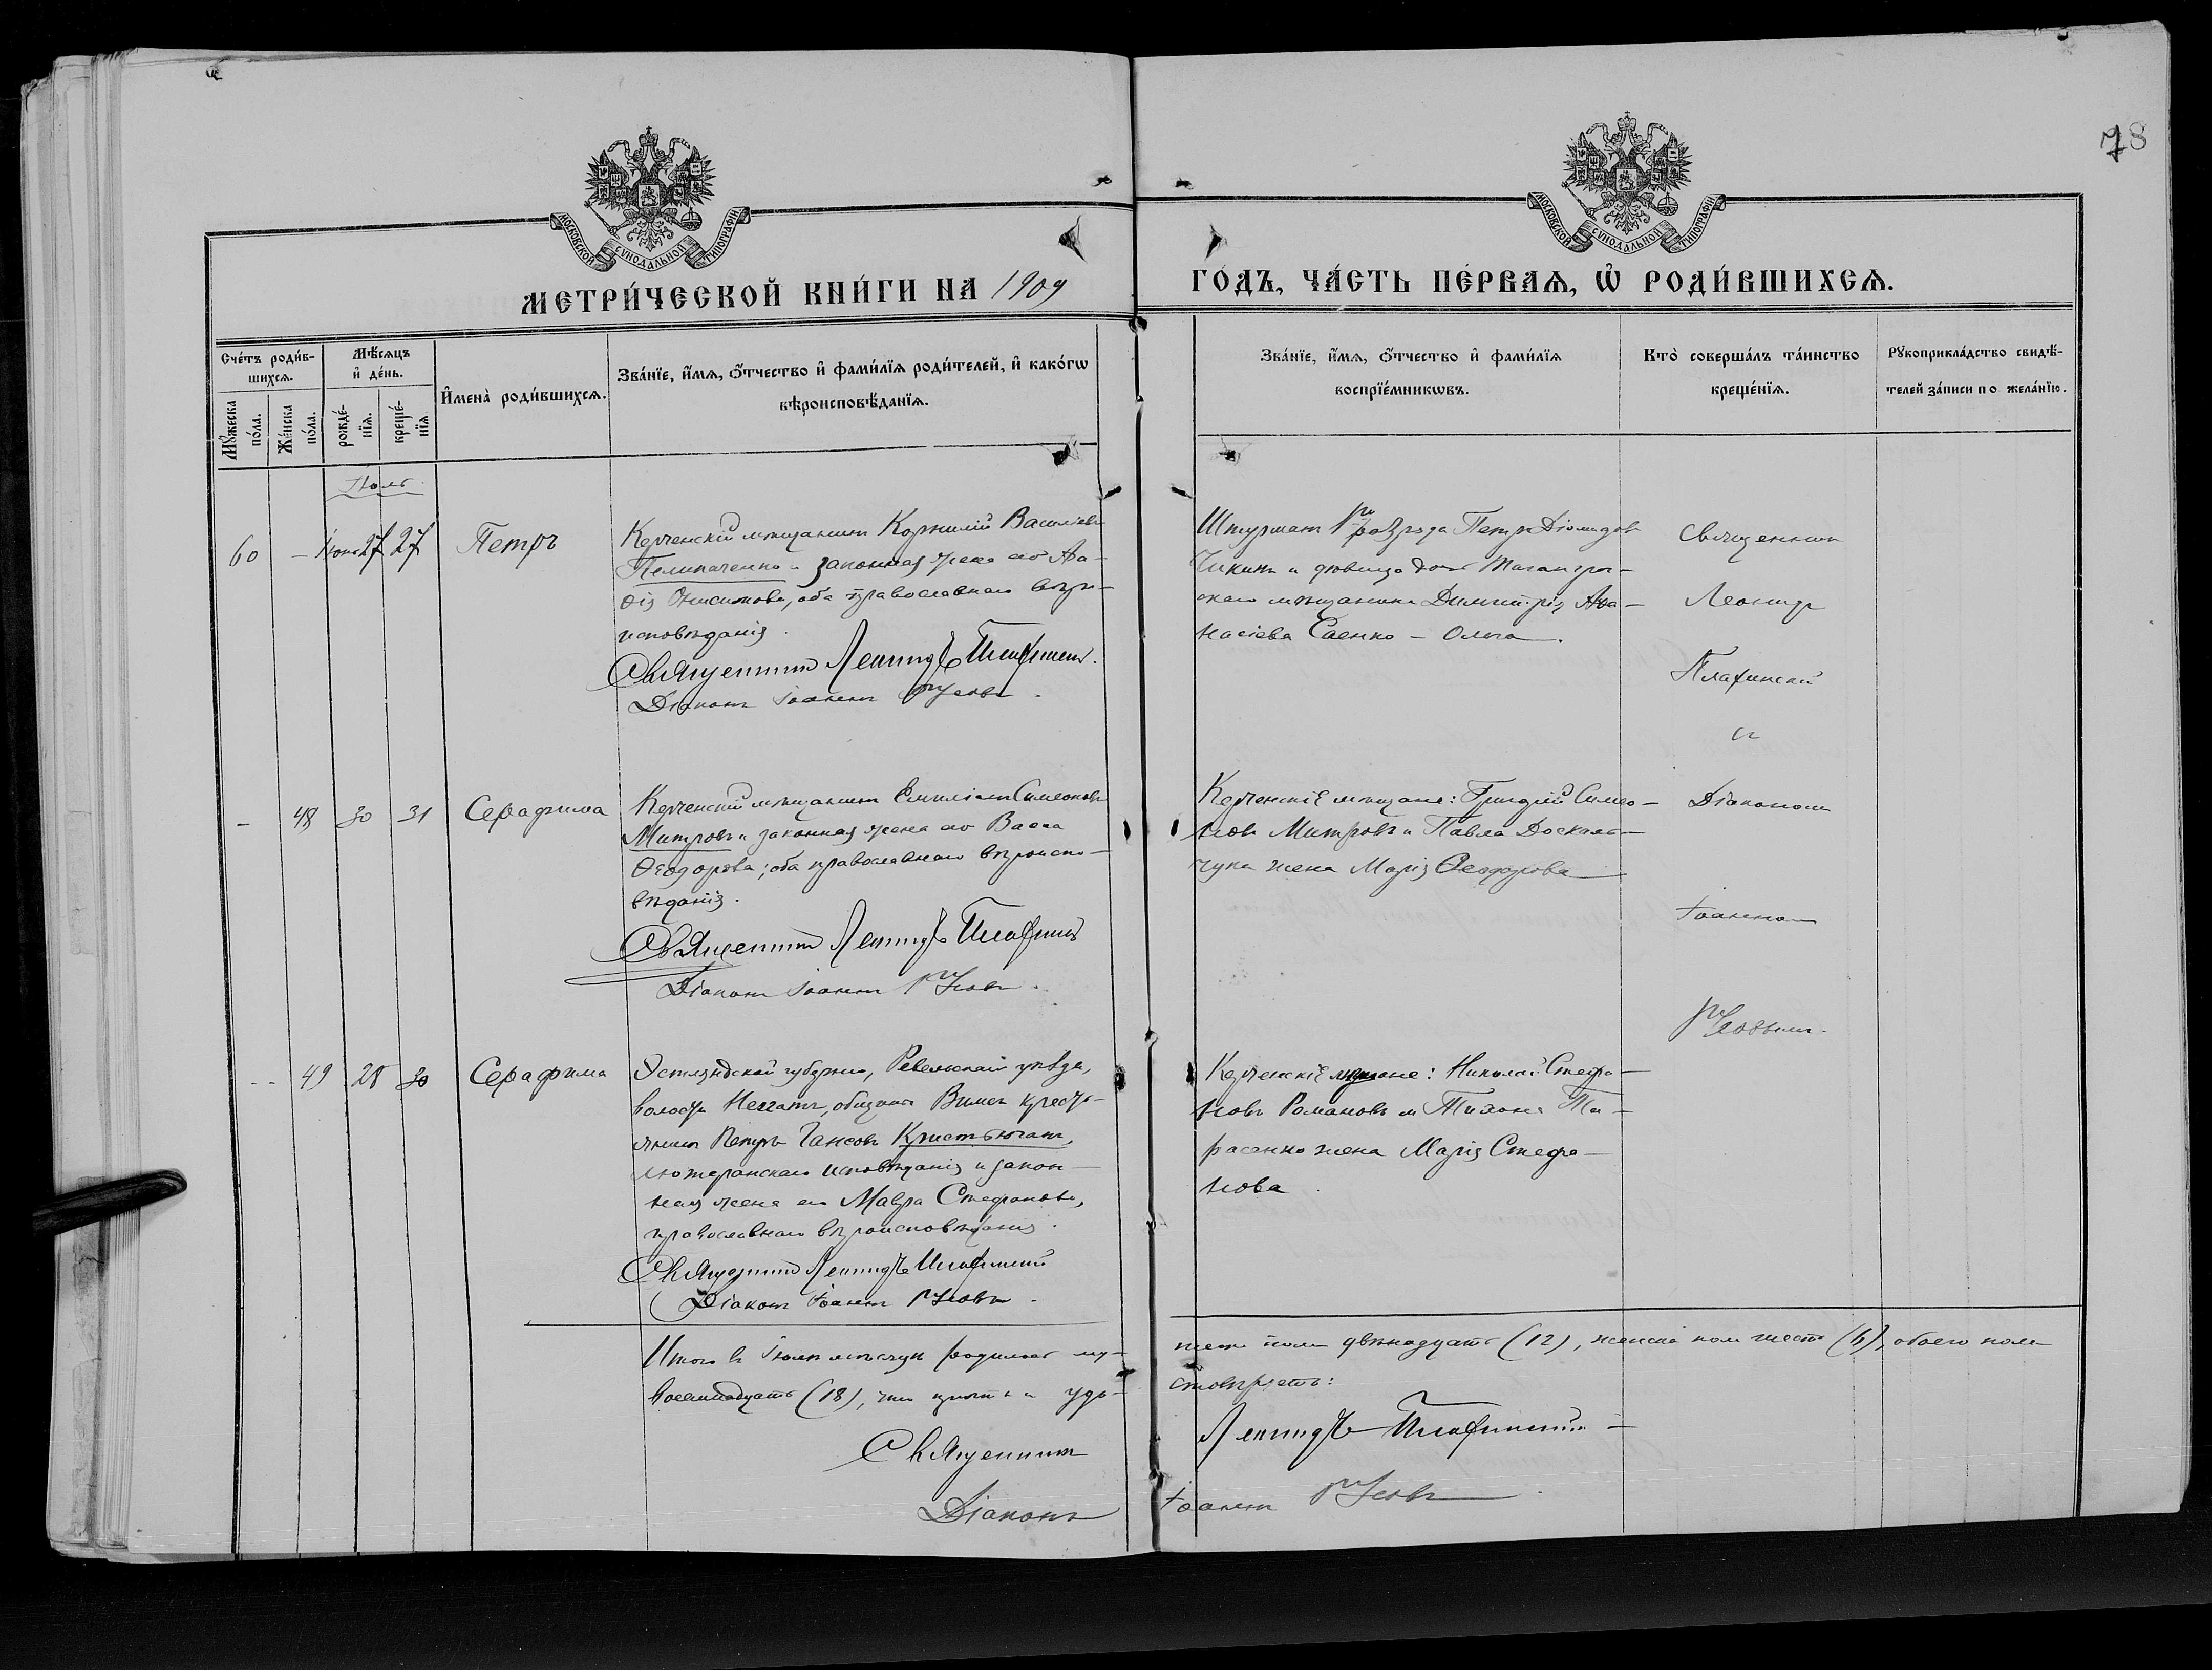 78
МОСКОВСКОЙ СѴНОДАЛЬНОЙ ТИПОГРАФІИ
МОСКОВСКОЙ СѴНОДАЛЬНОЙ ТИПОГРАФІИ
МЕТРИ́ЧЕСКОЙ КНИ́ГИ НА 1909
ГО́ДЪ, ЧА́СТЬ ПЕ́РВАѦ, Ѡ҆ РОДИ́ВШИХСѦ.
Сче́тъ роди́в-
шихсѧ.
Мꙋ́жеска по́ла.
Же́нска по́ла.
Мѣ́сѧцъ
и҆ де́нь.
рожде́-
нїѧ.
креще́-
нїѧ
И҆мена̀ роди́вшихсѧ.
Зва́нїе, и҆́мѧ, ѻ҆́тчество и҆ фами́лїѧ роди́телей, и҆ како́гѡ
вѣроисповѣ́данїѧ.
Зва́нїе, и҆́мѧ, ѻ҆́тчество и҆ фами́лїѧ
воспрїе́мникѡвъ.
Кто̀ соверша́лъ та́инство
креще́нїѧ.
Рꙋкоприкла́дство свидѣ́-
телей за́писи по жела́нїю.
Іюль
60 — 27 27 Петръ
Керченскій мѣщанинъ Корнилій Васильевъ
и законная жена его Ага-
фія Онисимова, оба православнаго вѣро-
исповѣданія.
Священникъ Леонидъ Плафинскій.
Діаконъ Іоаннъ Усовъ.
Штурманъ 1го разряда Петръ Діомидовъ
Чикинъ и дѣвица дочь Таганрог-
скаго мѣщанина Димитрія Афа-
насіева Саенко — Ольга.
Священникъ
Леонидъ
Плафинскій
и
Діакономъ
Іоанномъ
Усовымъ.
— 48 30 31 Серафима
Керченскій мѣщанинъ Емиліанъ Симеоновъ
Митровъ и законная жена его Васса
Ѳеодорова; оба православнаго вѣроиспо-
вѣданія.
Священникъ Леонидъ Плафинскій
Діаконъ Іоаннъ Усовъ.
Керченскіе мѣщане: Григорій Симео-
новъ Митровъ и Павла Доскаль-
чука жена Марія Ѳеодорова
-- 49 28 30 Серафима
Эстляндской губерніи, Ревельскаго уѣзда,
волости общины кресть-
янинъ Петръ Гансовъ
лютеранскаго исповѣданія и закон-
ная жена его Мавра Стефанова,
православнаго вѣроисповѣданія.
Священникъ Леонидъ Плафинскій
Діаконъ Іоаннъ Усовъ.
Керченскіе мѣщане: Николай Стефа-
новъ Романовъ и Тихона Та-
расенко жена Марія Стефа-
нова.
Итого въ Іюлѣ мѣсяцѣ родилось му-
жеска пола двѣнадцать (12), женска пола шесть (6), обоего пола
восемнадцать (18), что и удо-
стовѣряетъ:
Священникъ Леонидъ Плафинскій
Діаконъ Іоаннъ Усовъ.